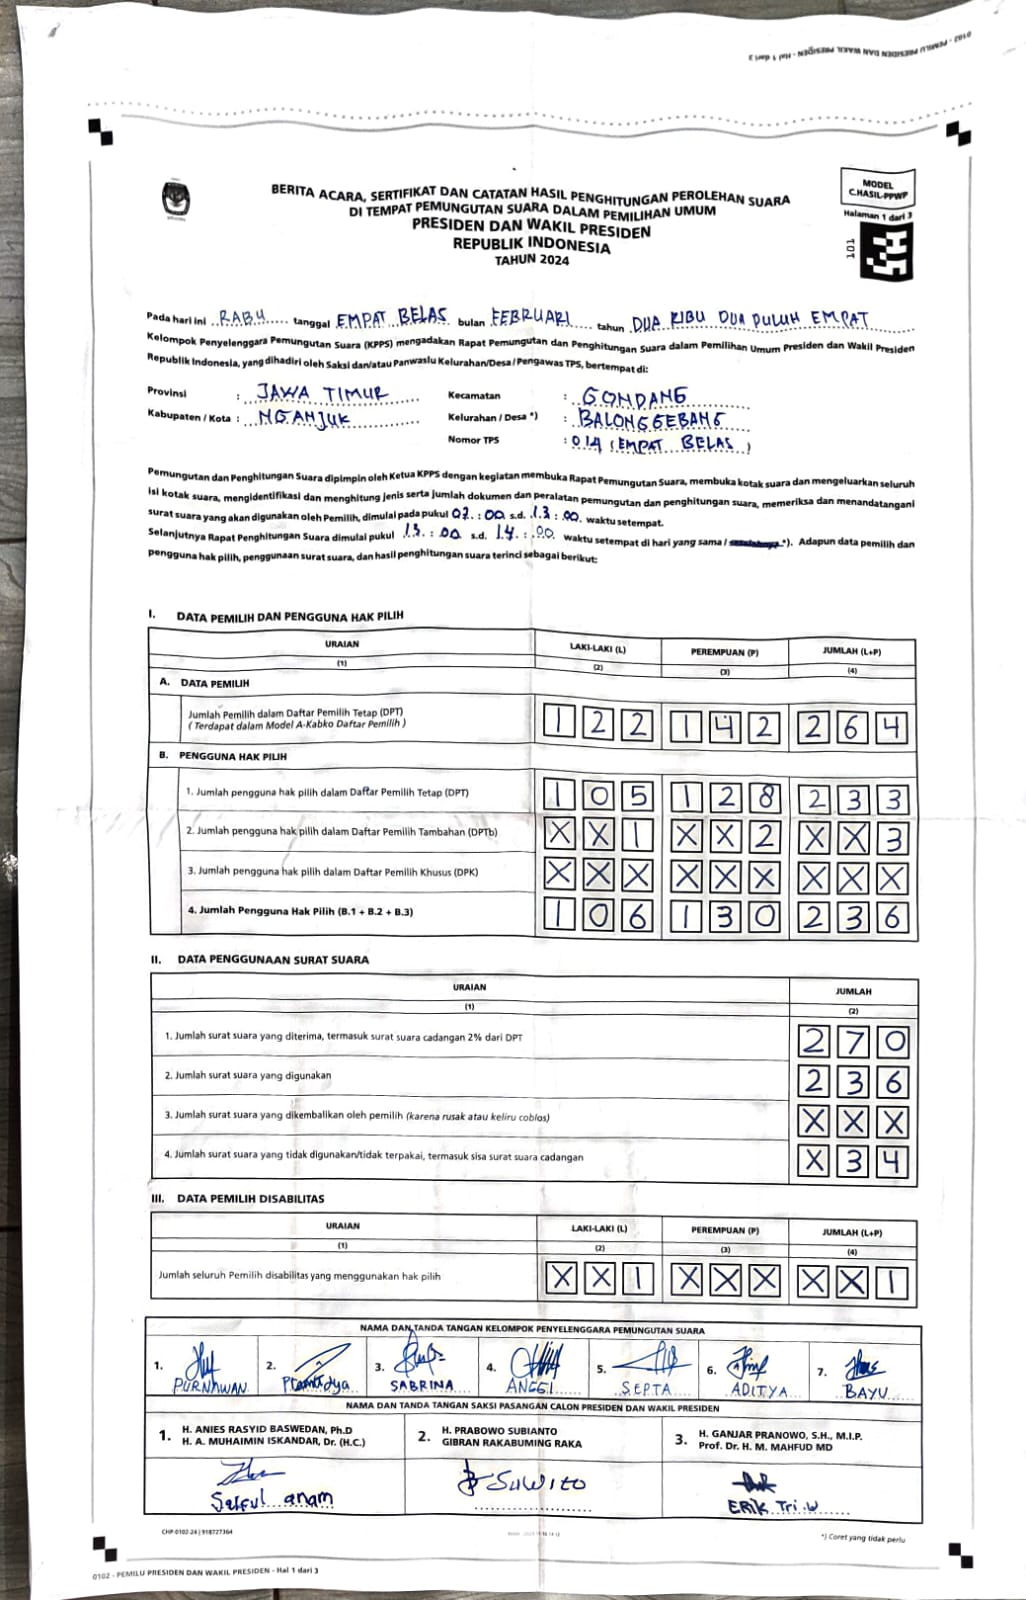 0102 - PEMILU PRESIDEN DAN WAKIL PRESIDEN - Hal 1 dari 3
BERITA ACARA, SERTIFIKAT DAN CATATAN HASIL PENGHITUNGAN PEROLEHAN SUARA
DI TEMPAT PEMUNGUTAN SUARA DALAM PEMILIHAN UMUM
PRESIDEN DAN WAKIL PRESIDEN
REPUBLIK INDONESIA
TAHUN 2024
MODEL
C.HASIL-PPWP
Halaman 1 dari 3
101
Pada hari ini RABU tanggal EMPAT BELAS bulan FEBRUARI tahun DUA RIBU DUA PULUH EMPAT
Kelompok Penyelenggara Pemungutan Suara (KPPS) mengadakan Rapat Pemungutan dan Penghitungan Suara dalam Pemilihan Umum Presiden dan Wakil Presiden
Republik Indonesia, yang dihadiri oleh Saksi dan/atau Panwaslu Kelurahan/Desa/Pengawas TPS, bertempat di:
Provinsi : JAWA TIMUR Kecamatan : GONDANG
Kabupaten / Kota : NGANJUK Kelurahan / Desa *) : BALONGGEBANG
Nomor TPS : 014 (EMPAT BELAS)
Pemungutan dan Penghitungan Suara dipimpin oleh Ketua KPPS dengan kegiatan membuka Rapat Pemungutan Suara, membuka kotak suara dan mengeluarkan seluruh
isi kotak suara, mengidentifikasi dan menghitung jenis serta jumlah dokumen dan peralatan pemungutan dan penghitungan suara, memeriksa dan menandatangani
surat suara yang akan digunakan oleh Pemilih, dimulai pada pukul 07 : 00 s.d. 13 : 00 waktu setempat.
Selanjutnya Rapat Penghitungan Suara dimulai pukul 13 : 00 s.d. 14 : 00 waktu setempat di hari yang sama / *). Adapun data pemilih dan
pengguna hak pilih, penggunaan surat suara, dan hasil penghitungan suara terinci sebagai berikut:
I. DATA PEMILIH DAN PENGGUNA HAK PILIH
URAIAN LAKI-LAKI (L) PEREMPUAN (P) JUMLAH (L+P)
(1) (2) (3) (4)
A. DATA PEMILIH
Jumlah Pemilih dalam Daftar Pemilih Tetap (DPT) 1 2 2 1 4 2 2 6 4
(Terdapat dalam Model A-Kabko Daftar Pemilih)
B. PENGGUNA HAK PILIH
1. Jumlah pengguna hak pilih dalam Daftar Pemilih Tetap (DPT) 1 0 5 1 2 8 2 3 3
2. Jumlah pengguna hak pilih dalam Daftar Pemilih Tambahan (DPTb) X X 1 X X 2 X X 3
3. Jumlah pengguna hak pilih dalam Daftar Pemilih Khusus (DPK) X X X X X X X X X
4. Jumlah Pengguna Hak Pilih (B.1 + B.2 + B.3) 1 0 6 1 3 0 2 3 6
II. DATA PENGGUNAAN SURAT SUARA
URAIAN JUMLAH
(1) (2)
1. Jumlah surat suara yang diterima, termasuk surat suara cadangan 2% dari DPT 2 7 0
2. Jumlah surat suara yang digunakan 2 3 6
3. Jumlah surat suara yang dikembalikan oleh pemilih (karena rusak atau keliru coblos) X X X
4. Jumlah surat suara yang tidak digunakan/tidak terpakai, termasuk sisa surat suara cadangan X 3 4
III. DATA PEMILIH DISABILITAS
URAIAN LAKI-LAKI (L) PEREMPUAN (P) JUMLAH (L+P)
(1) (2) (3) (4)
Jumlah seluruh Pemilih disabilitas yang menggunakan hak pilih X X 1 X X X X X 1
NAMA DAN TANDA TANGAN KELOMPOK PENYELENGGARA PEMUNGUTAN SUARA
1. PURNAWAN 2. 3. SABRINA 4. ANGGI 5. SEPTA 6. ADITYA 7. BAYU
NAMA DAN TANDA TANGAN SAKSI PASANGAN CALON PRESIDEN DAN WAKIL PRESIDEN
1. H. ANIES RASYID BASWEDAN, Ph.D
H. A. MUHAIMIN ISKANDAR, Dr. (H.C.)
2. H. PRABOWO SUBIANTO
GIBRAN RAKABUMING RAKA
3. H. GANJAR PRANOWO, S.H., M.I.P.
Prof. Dr. H. M. MAHFUD MD
Saiful anam SUWITO ERIK Tri.W
CHP 0102-24 | 918727364
*) Coret yang tidak perlu
0102 - PEMILU PRESIDEN DAN WAKIL PRESIDEN - Hal 1 dari 3